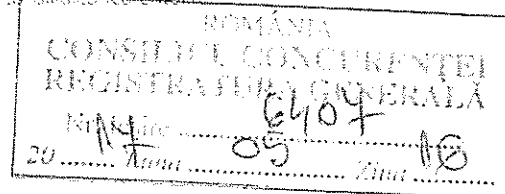 ROMÂNIA
CONSILIUL CONCURENŢEI
REGISTRATURA GENERALĂ
6407
20 17 Luna 05 Ziua 16